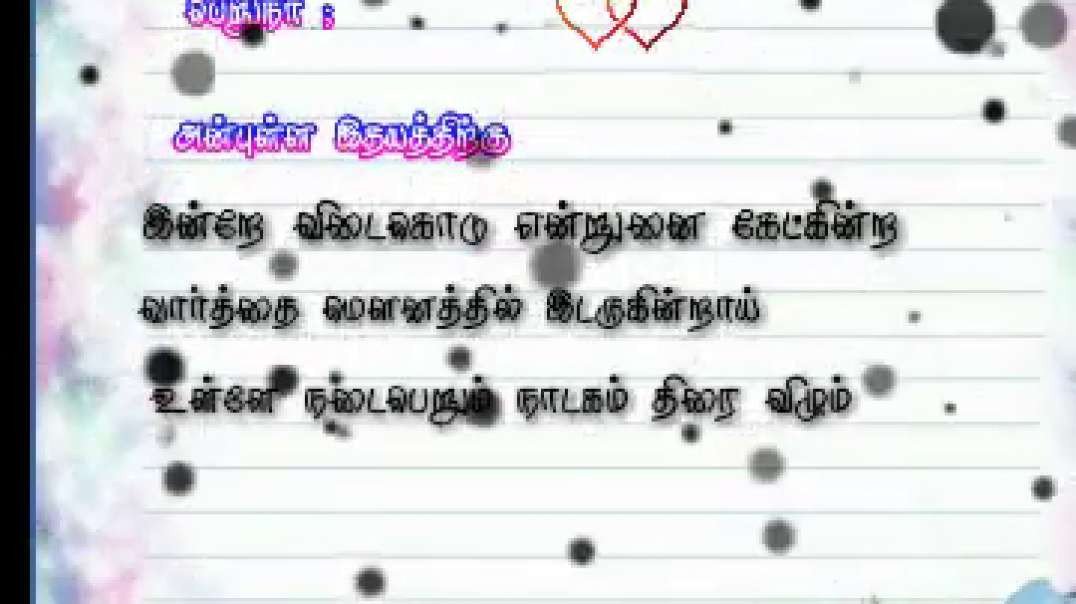 பெறுநர் :
அன்புள்ள இதயத்திற்கு
இன்றே விடைகொடு என்றுனை கேட்கின்ற
வார்த்தை மௌனத்தில் இடருகின்றாய்
உள்ளே நடைபெறும் நாடகம் திரை விழும்